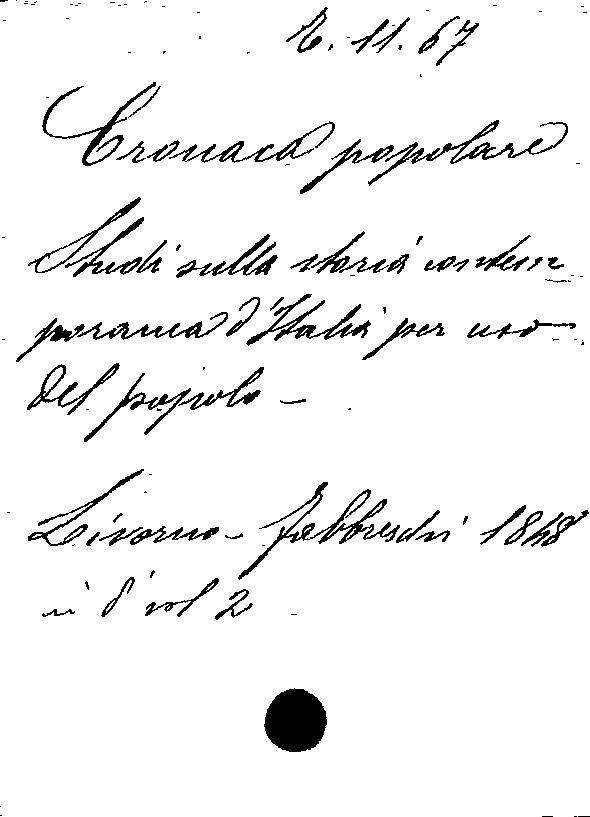 E. 11. 67
Cronaca popolare
Studi sulla storia contem
poranea d'Italia per uso
del popolo -
Livorno - Fabbreschi 1848
in 8° vol 2